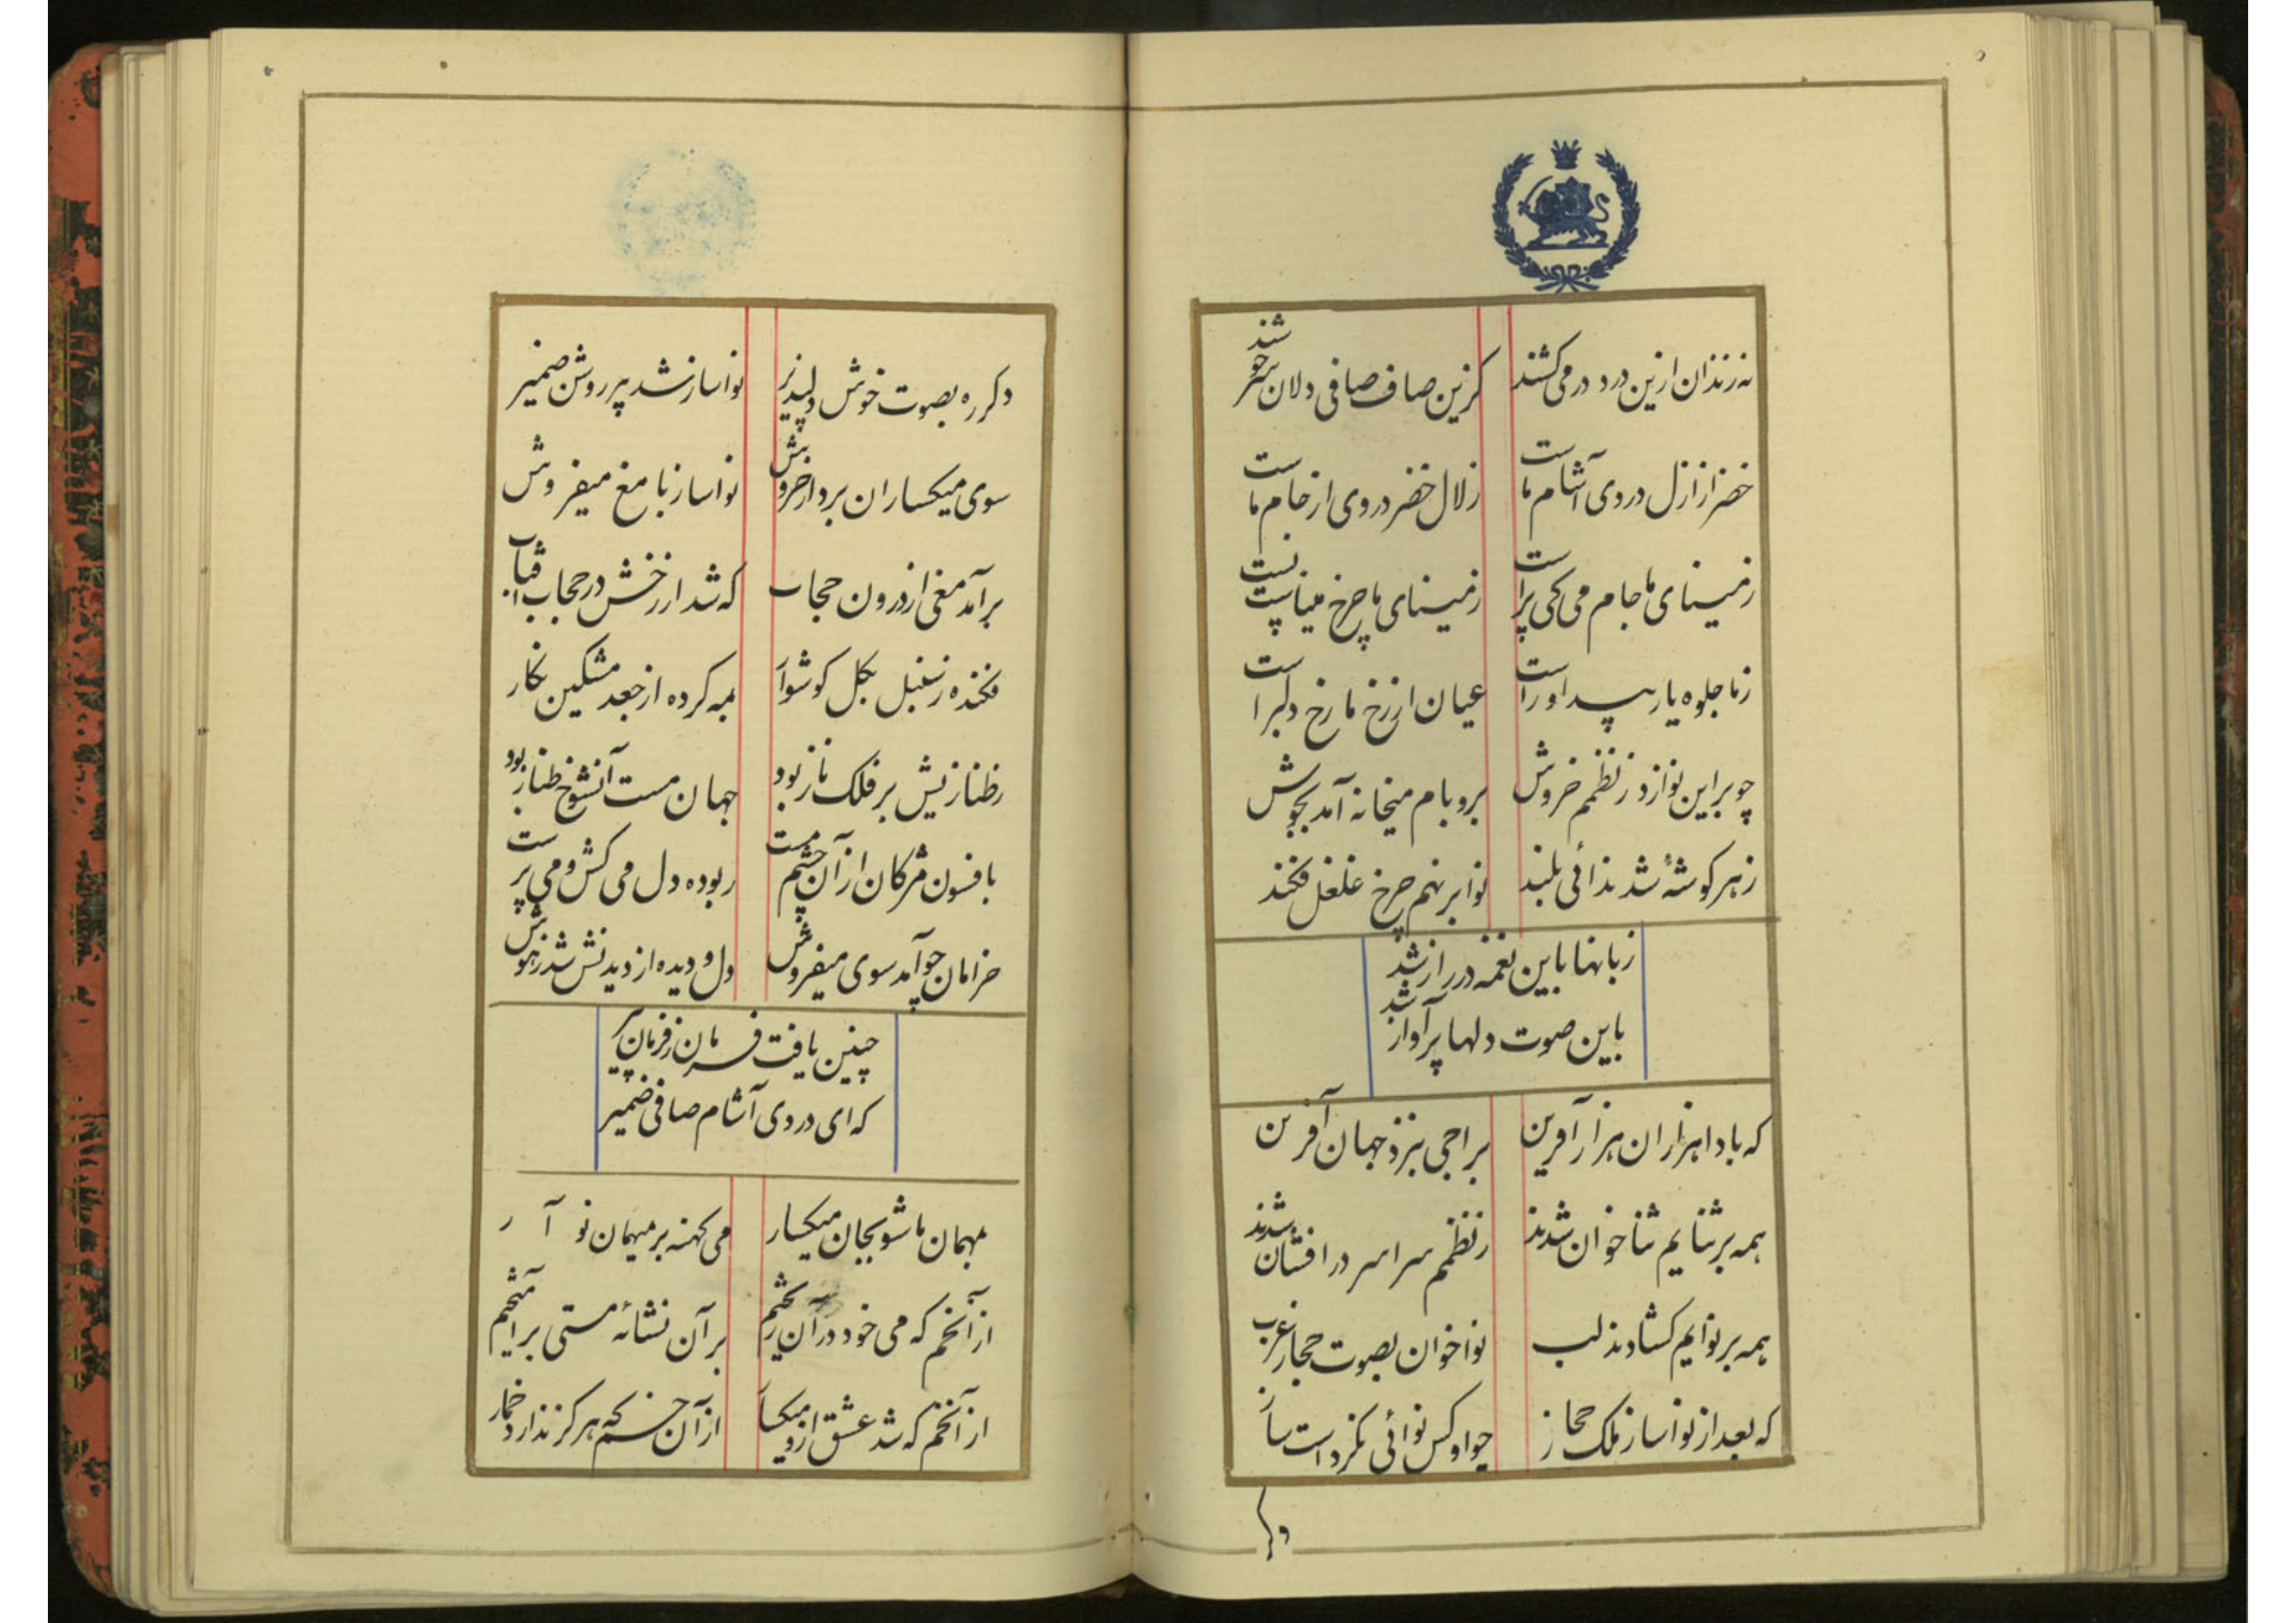 نه رندان ازین درد در می کشند
کزین صاف صافی دلان سرخوشند
خضر از ازل دردی آشام ماست
زلال خضر دردی از جام ماست
ز مینای ما جام می کی پر است
ز مینای ما چرخ مینا
ز ما جلوه یار پیدا و راست
عیان از رخ ما رخ دلبر است
چو بر این نوا زد ز نظمم خروش
بر و بام میخانه آمد بجوش
ز هر کوشهٔ شد ندائی بلند
نوا بر نهم چرخ غلغل فکند
زبانها باین نغمه در راز شد
باین صوت دلها پر آواز شد
که بادا هزاران هزار آفرین
براجی بنزد جهان آفرین
همه بر ثنایم ثنا خوان شدند
ز نظمم سراسر در افشان شدند
همه بر نوایم کشادند لب
نوا خوان بصوت حجاز عرب
که بعد از نواساز ملک حجاز
چو او کس نوائی نکرداست ساز
دکر ره بصوت خوش دلپذیر
نواساز شد پیر روشن ضمیر
سوی میکساران برد از خروش
نواساز با مغ میفروش
برآمد مغی از درون حجاب
که شد از رخش در حجاب آفتاب
فکنده ز سنبل بکل کوشوار
همه کرده از جعد مشکین نکار
ز طنازیش بر فلک ناز بود
جهان مست آنشوخ طناز بود
بافسون مژکان از آن چشم مست
ربوده دل می کش و می پرست
خرامان چو آمد سوی میفروش
دل و دیده از دیدنش شد ز هوش
چنین یافت فرمان ز فرمان پیر
که ای دردی آشام صافی ضمیر
مهمان ما شو بجان میکسار
می کهنه بر میهمان نو آر
از آنخم که می خود در آن
بر آن نشائه مستی بر
از آنخم که شد عشق ازو میکسار
از آن خم که هرکز ندارد خمار